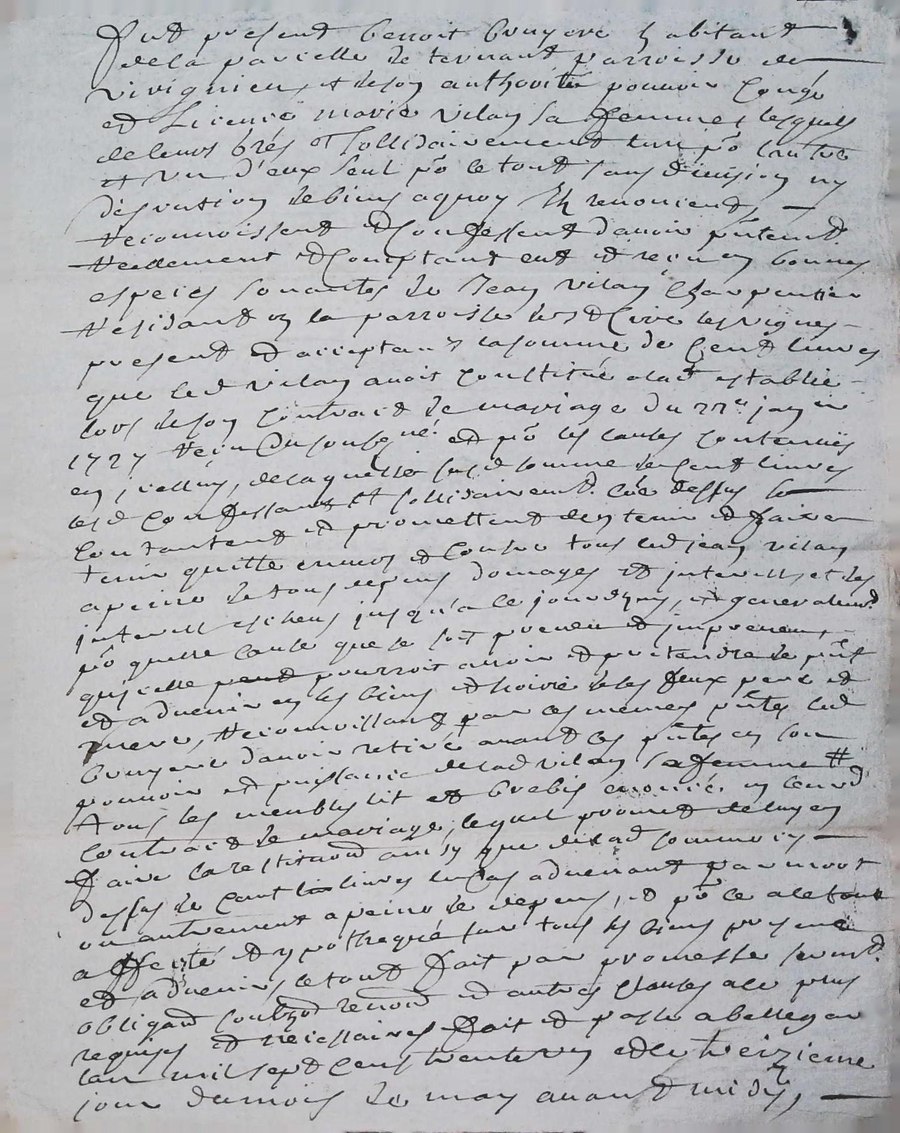 Fut present benoit bruyere habitant
de la parcelle de ternant parroisse de
Virignieu, et de son authorité pouvoir congé
et Licence marie vilan sa femme, lesquels
de leurs grés et sollidairement lun pō lautre
et un d'eux seul pō le tout sans division ny
discution de biens a quoy Ils renoncent,
reconnoissent et Confessent d'avoir pntemt
reellement et Comptant eut et recu en bonnes
especes sonantes de Jean vilan Charpentier
residant en la parroisse de
present et acceptant la somme de Cent livres
que led vilan avoit constitué a lad establie
lors de son Contract de mariage du 22e janer
1727 recu du soubsigné et pō les causes contenües
en jcelluy, de laquelle susd somme de Cent livres
lesd Confessants et sollidairemt. Cōe dessus se
Contantent et promettent d'en tenir et faire
tenir quitte envers et Contre tous led jean vilan
a peine de tous depens domages et interests, et des
interest escheus jusqu'a ce jourdhuy, et generalemt
pō quelle cause que ce soit preveu et impreveu,
qu'jcelle pourroit avoir et pretandre de pnt
et advenir en les biens et hoirie de ses feux pere et
mere, Reconnoissant par ces memes pntes led
bruyere d'avoir retiré avant ces pntes en son
pouvoir et puissance de lad vilan sa femme #
tous les meubles lit et brebis enoncés en leurd
Contract de mariage, lequel promet de luy en
faire la restitution ainsy que de lad somme cy
dessus de Cent livres le cas advenant par mort
ou autrement a peine de depens, et pō ce a le tout
affecté et ypothequé sur tous ses biens presens
et advenir, le tout fait par promesse sermt.
obligaon renon et autres Clauses a ce plus
requises et necessaires fait et passé a bellegar
lan mil sept cens trente un et le treizieme
jour du mois de may avant midy,